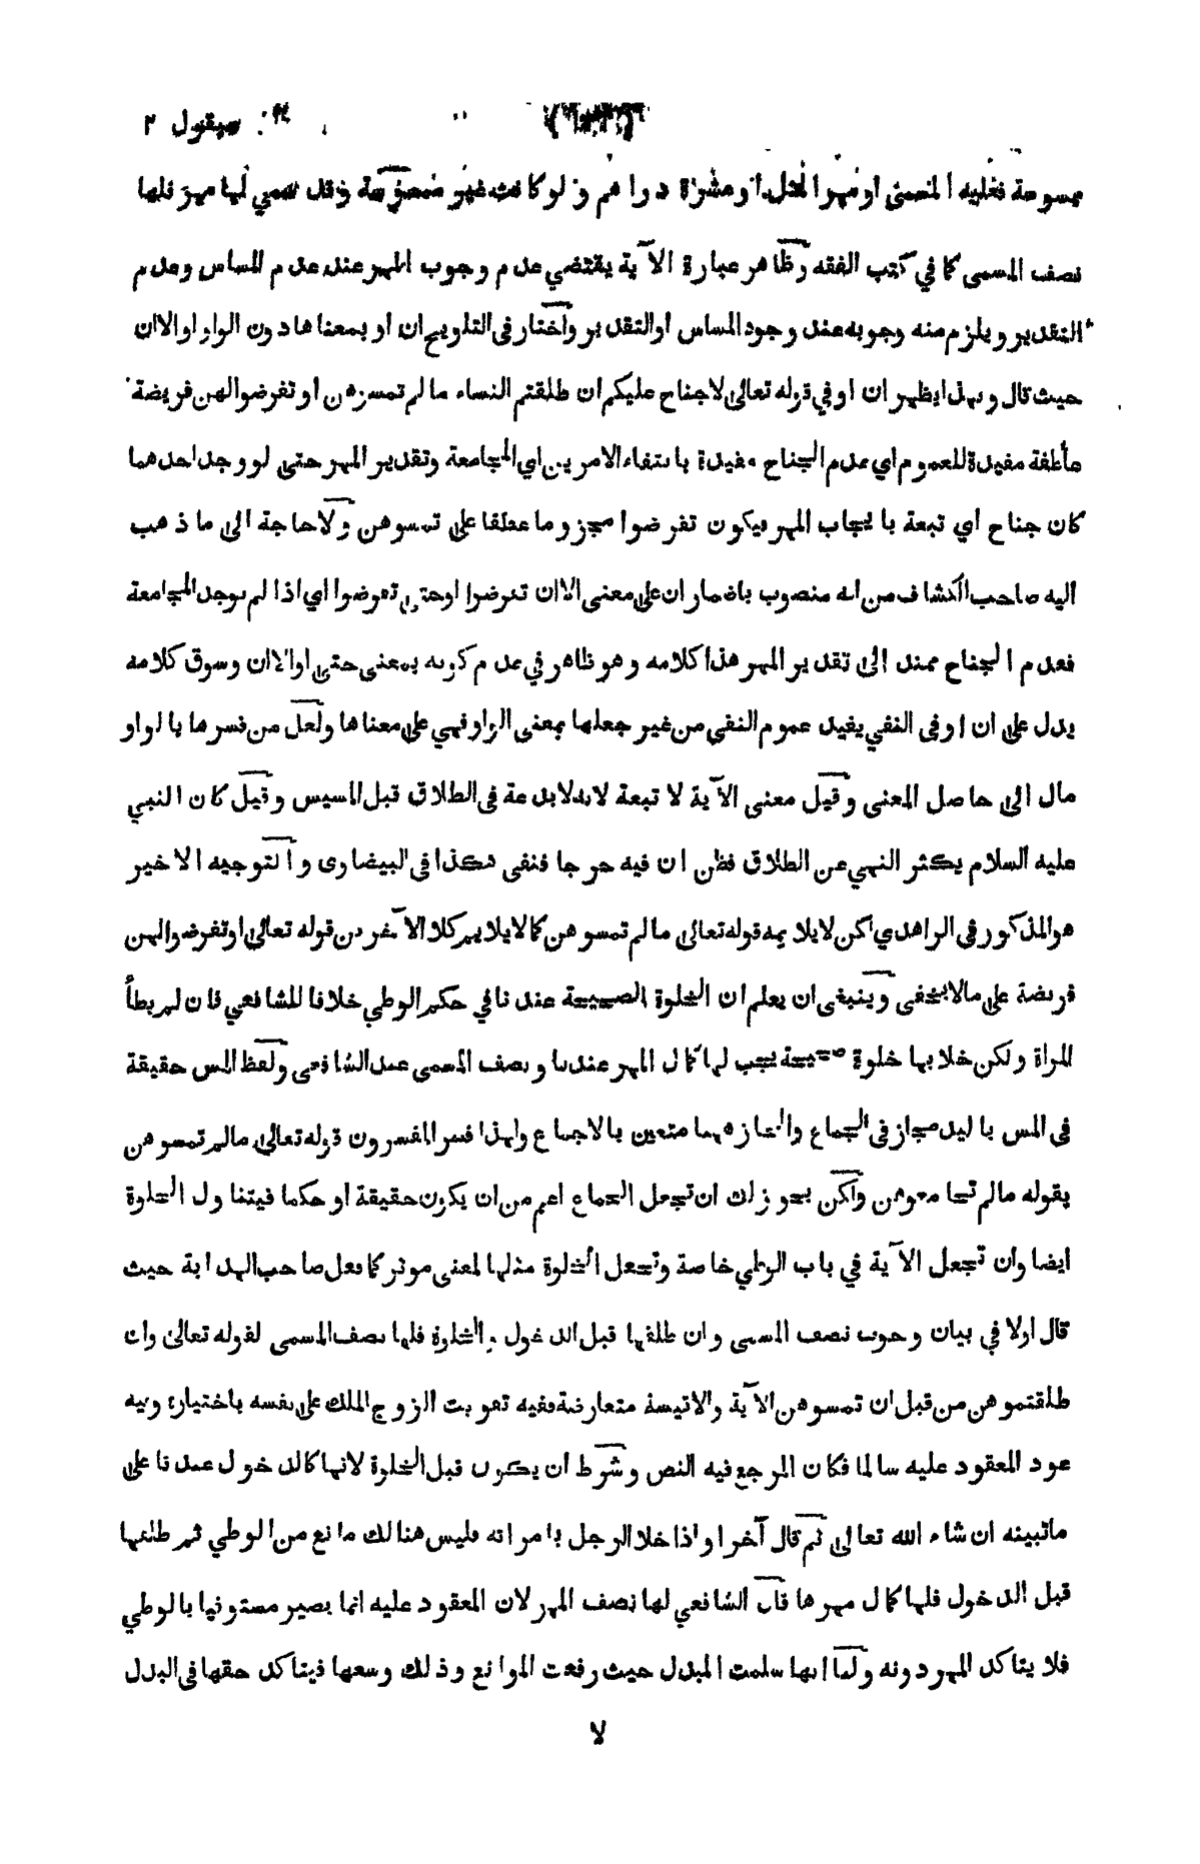 سيقول ٢
ممسوحة فعليه المسمى او مهر المثل او عشرة دراهم و لو كانت غير ممسوسة وقد سمي لها مهر فلها
نصف المسمى كما في كتب الفقه وظاهر عبارة الآية يقتضي عدم وجوب المهر عند عدم المساس وعدم
التقدير و يلزم منه وجوبه عند وجود المساس او التقدير واختار فى التلويح ان او بمعناها دون الواو او الا ان
حيث قال وبهذا يظهر ان او في قوله تعالى لا جناح عليكم ان طلقتم النساء ما لم تمسوهن او تفرضوا لهن فريضة
عاطفة مفيدة للعموم اي عدم الجناح مفيدة بانتفاء الامرين اي المجامعة وتقدير المهر حتى لو وجد احدهما
كان جناح اي تبعة بايجاب المهر فيكون تفرضوا مجزوما عطفا على تمسوهن ولا حاجة الى ما ذهب
اليه صاحب الكشاف من انه منصوب باضمار ان على معنى الا ان تفرضوا او حتى تفرضوا اي اذا لم يوجد المجامعة
فعدم الجناح ممتد الى تقدير المهر هذا كلامه وهو ظاهر في عدم كونه بمعنى حتى او الا ان وسوق كلامه
يدل على ان او فى النفي يفيد عموم النفي من غير جعلها بمعنى الواو فهي على معناها ولعل من فسرها بالواو
مال الى حاصل المعنى وقيل معنى الآية لا تبعة لانه لا بدعة فى الطلاق قبل المسيس وقيل كان النبي
عليه السلام يكثر النهي عن الطلاق فظن ان فيه حرجا فنفى هكذا فى البيضاوى والتوجيه الاخير
هو المذكور فى الزاهدي لكن لا يلايمه قوله تعالى ما لم تمسوهن كما لا يلايم كلا الآخرين قوله تعالى او تفرضوا لهن
فريضة على ما لا يخفى وينبغى ان يعلم ان الخلوة الصحيحة عندنا في حكم الوطي خلافا للشافعي فان لم يطأ
المراة ولكن خلا بها خلوة صحيحة يجب لها كمال المهر عندنا ونصف المسمى عند الشافعى ولفظ المس حقيقة
فى المس باليد مجاز فى الجماع والمجاز ههنا متعين بالاجماع ولهذا فسر المفسرون قوله تعالى ما لم تمسوهن
بقوله ما لم تجامعوهن ولكن يجوز لك ان تجعل الجماع اعم من ان يكون حقيقة او حكما فيتناول الخلوة
ايضا وان تجعل الآية في باب الوطي خاصة وتجعل الخلوة مثلها لمعنى موثر كما فعل صاحب الهداية حيث
قال اولا في بيان وجوب نصف المسمى وان طلقها قبل الدخول والخلوة فلها نصف المسمى لقوله تعالى وان
طلقتموهن من قبل ان تمسوهن الآية والاقيسة متعارضة ففيه تفويت الزوج الملك على نفسه باختياره وفيه
عود المعقود عليه سالما فكان المرجع فيه النص وشرط ان يكون قبل الخلوة لانها كالدخول عندنا على
ما نبينه ان شاء الله تعالى ثم قال آخرا واذا خلا الرجل بامراته فليس هنالك مانع من الوطي ثم طلقها
قبل الدخول فلها كمال مهرها قال الشافعي لها نصف المهر لان المعقود عليه انما يصير مستوفيا بالوطي
فلا يتاكد المهر دونه ولنا انها سلمت المبدل حيث رفعت الموانع وذلك وسعها فيتاكد حقها فى البدل
لا